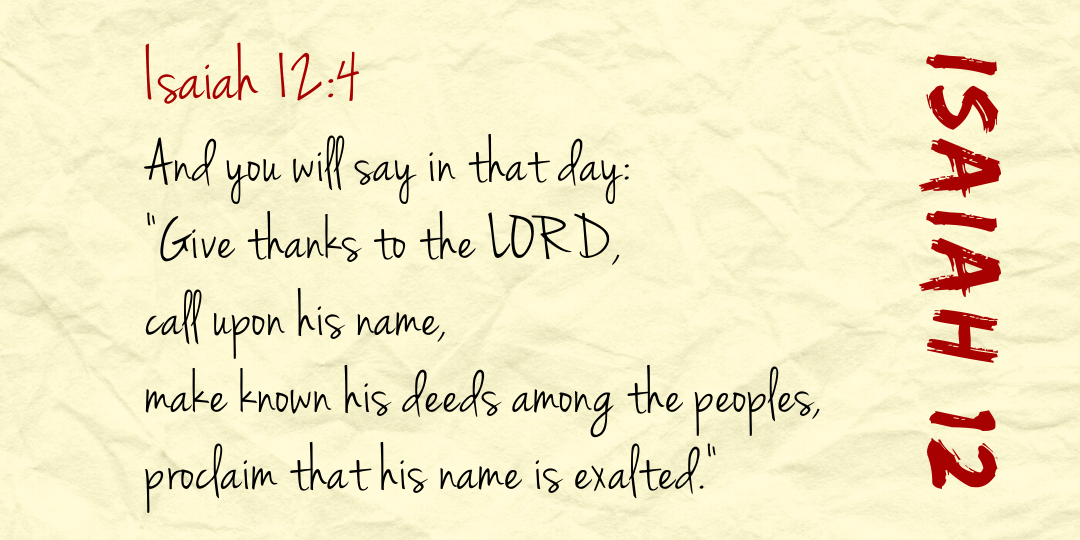 Isaiah 12:4
And you will say in that day:
"Give thanks to the LORD,
call upon his name,
make known his deeds among the peoples,
proclaim that his name is exalted."
ISAIAH 12